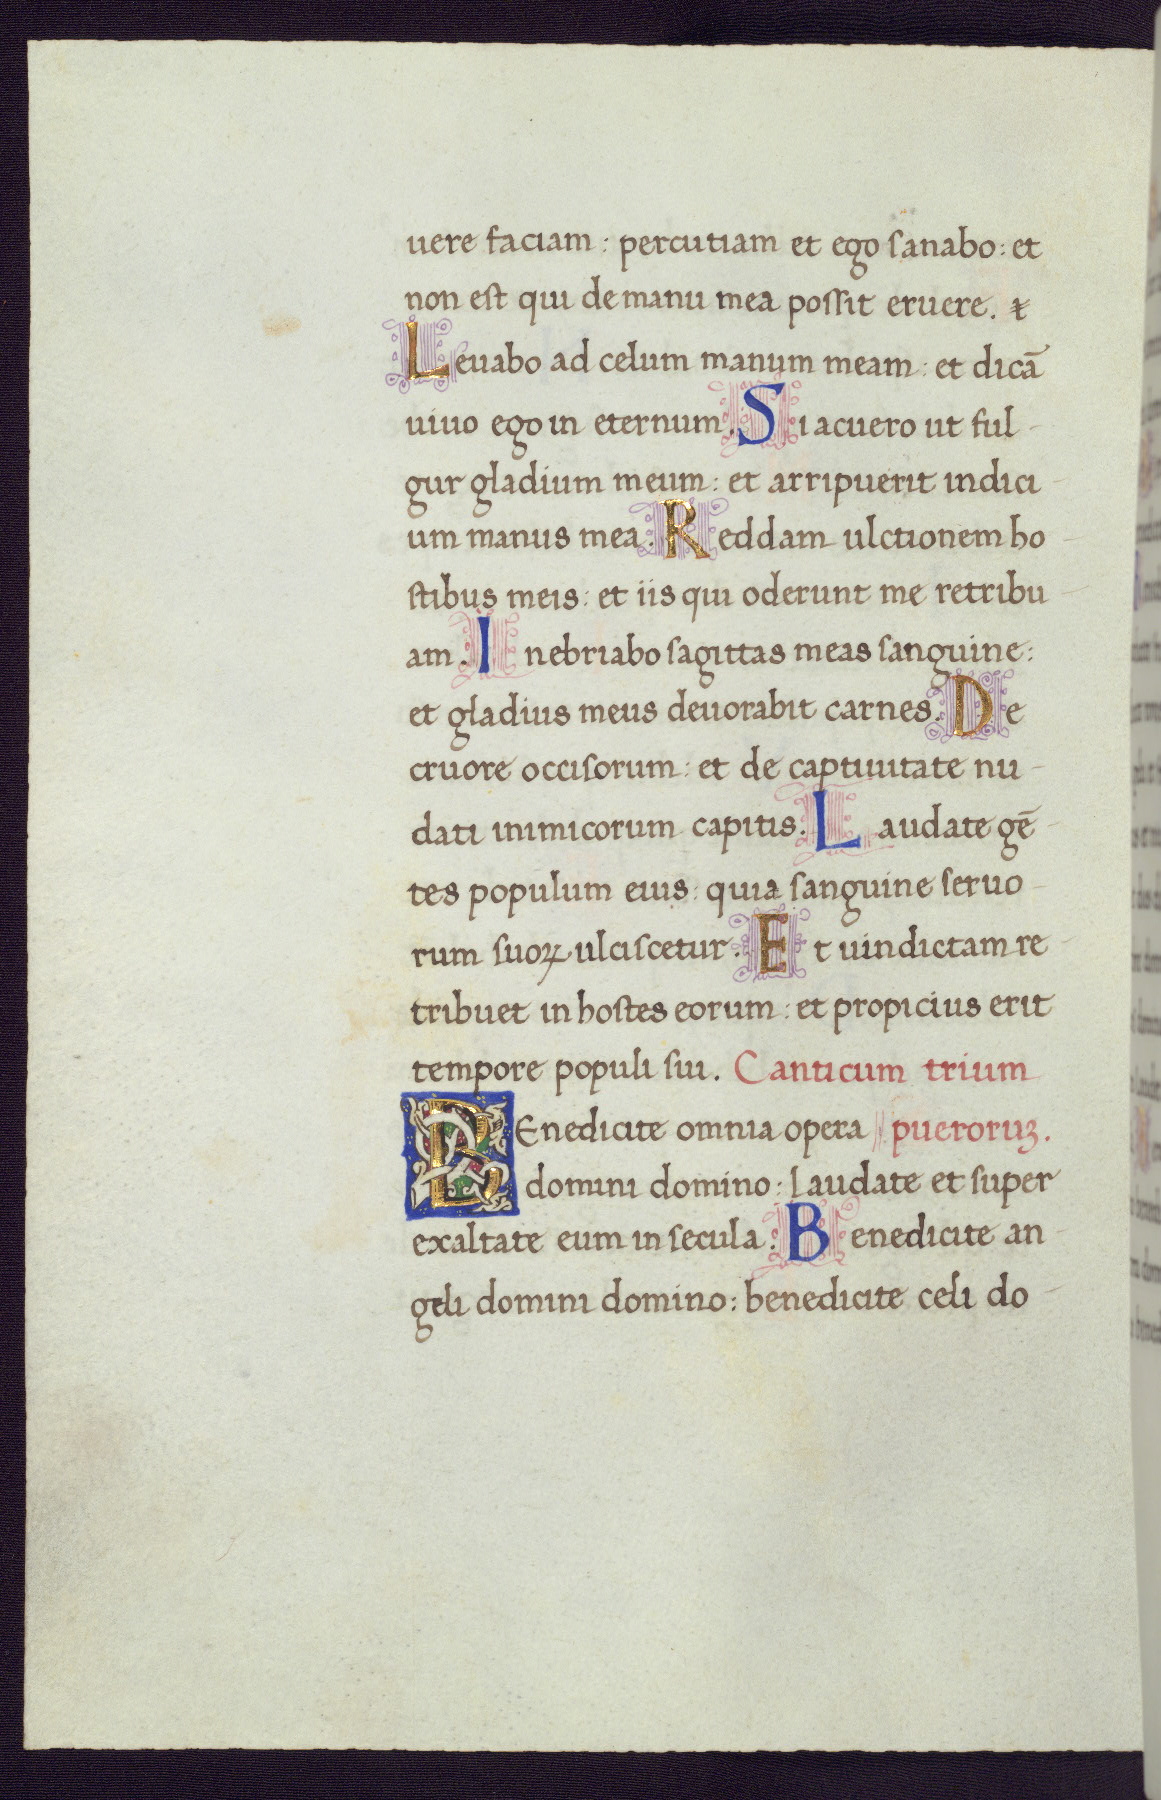 uere faciam : percutiam et ego sanabo : et
non est qui de manu mea possit eruere.
Leuabo ad celum manum meam : et dicā
uiuo ego in eternum. Si acuero ut ful
gur gladium meum : et arripuerit iudici
um manus mea. Reddam ulctionem ho
stibus meis : et iis qui oderunt me retribu
am. Inebriabo sagittas meas sanguine :
et gladius meus deuorabit carnes. De
cruore occisorum : et de captiuitate nu
dati inimicorum capitis. Laudate gē
tes populum eius : quia sanguine seruo
rum suoꝝ ulciscetur. Et uindictam re
tribuet in hostes eorum : et propicius erit
tempore populi sui. Canticum trium
BEnedicite omnia opera pueroruꝫ.
domini domino : laudate et super
exaltate eum in secula. Benedicite an
geli domini domino : benedicite celi do